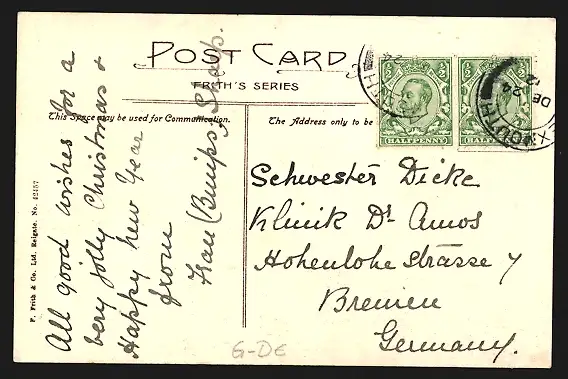 POST CARD
FRITH'S SERIES
This Space may be used for Communication.
The Address only to be
All good wishes for a
very jolly Christmas &
Happy New Year
from
F. Frith & Co. Ltd. Reigate. No. 42457
HALFPENNY
HALF
EXMOUTH
DE 24
12
Schwester Dicke
Klinik Dr Amos
Hohenlohe Strasse 7
Bremen
Germany.
G-DE